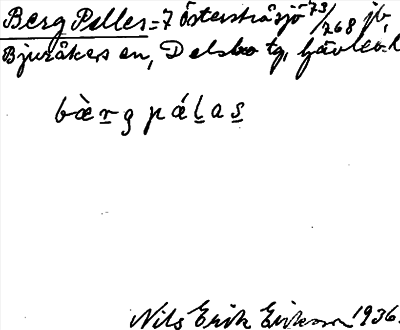 Berg Pelles = 7 Österstråsjö 73/268 jb,
Bjuråkers sn, Delsbo tg, Gävleb.l
bæ̀r̲g pál̲as̲
Nils Erik Erikson 1936.